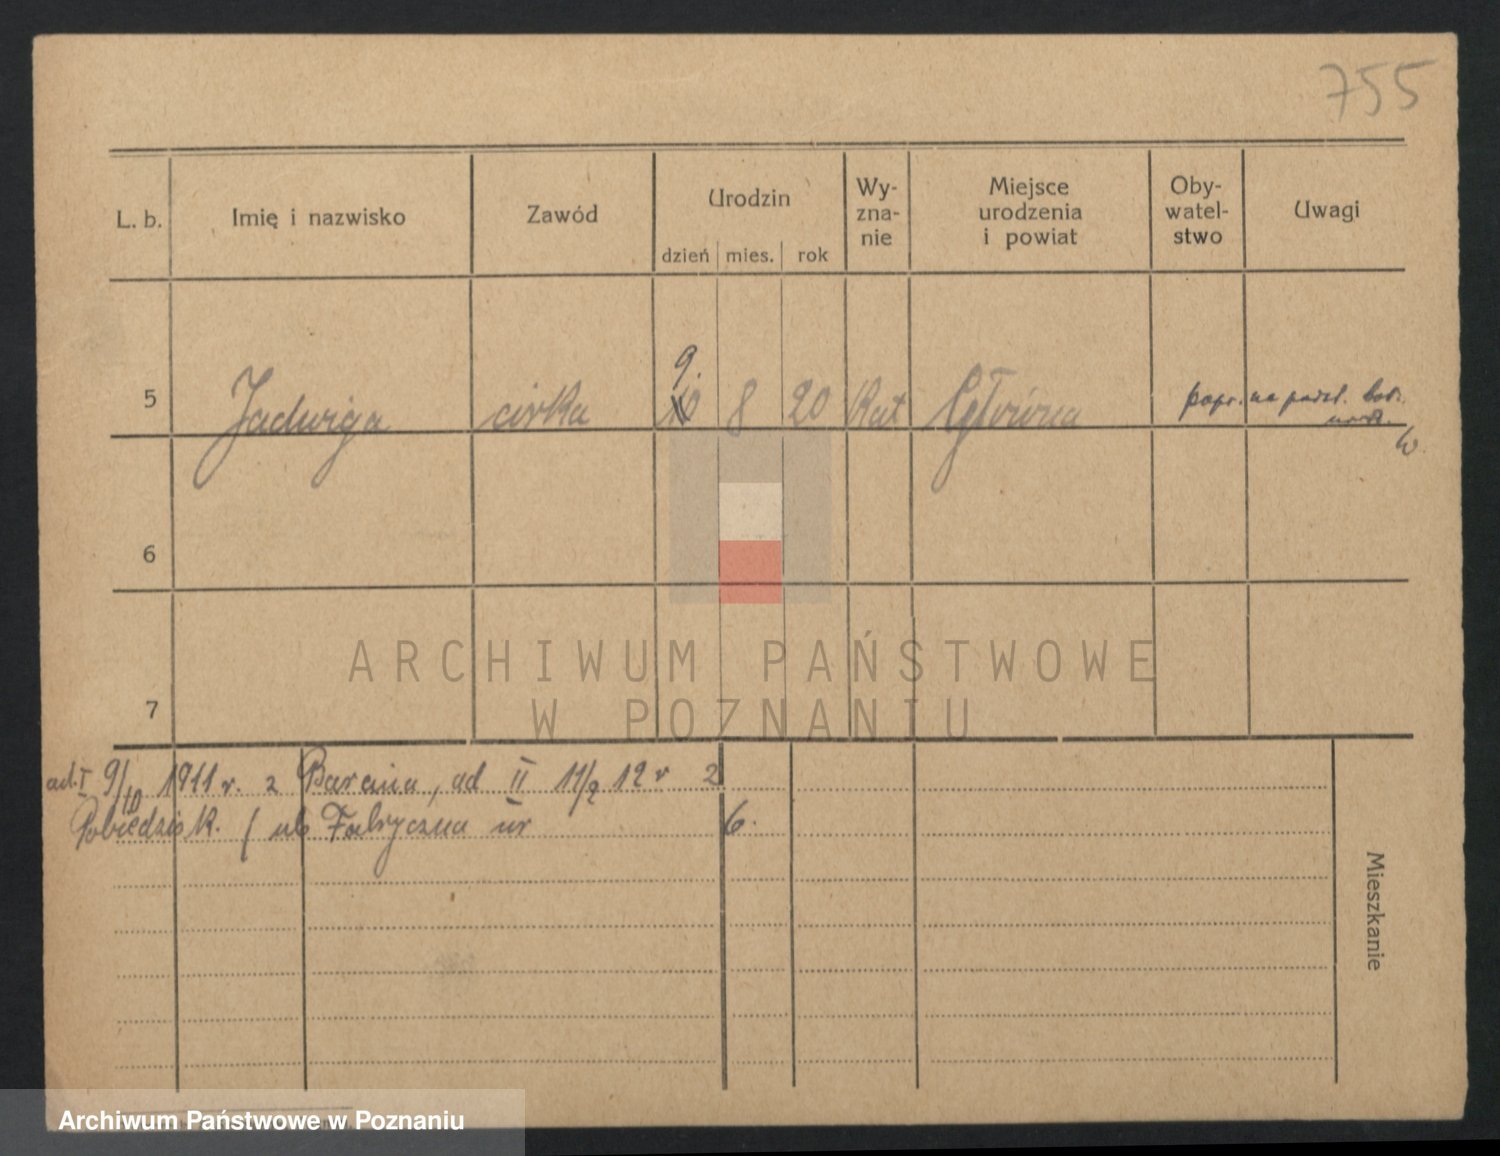 755
L. b. Imię i nazwisko Zawód Urodzin Wy-zna-nie Miejsce urodzenia i powiat Oby-watel-stwo Uwagi
dzień mies. rok
9.
5 Jadwiga córka 10 8 20 Kat Główna popr. na podst.
6
7
ARCHIWUM PAŃSTWOWE
W POZNANIU
ad. I 9/10 1911 r. z Barania, ad II 11/2 12 r z
Pobiedzisk. / ul. Fabryczna nr 6.
Mieszkanie
Archiwum Państwowe w Poznaniu